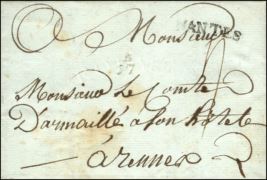 Monsieur
NANTES
Monsieur le Comte
D'armaillé a son hotel
a rennes